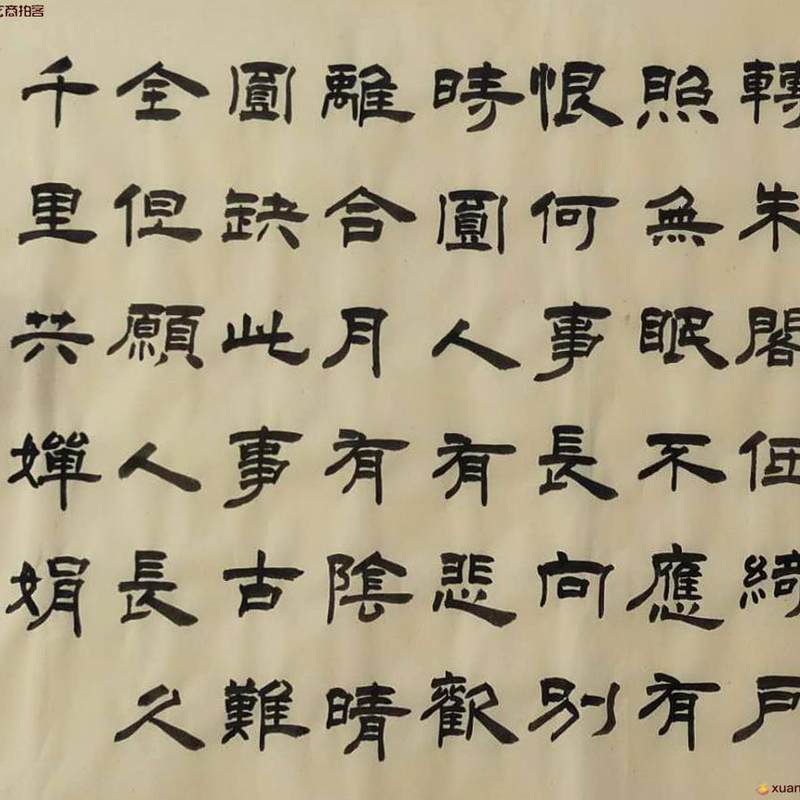 轉朱閣低綺戶
照無眠不應有
恨何事長向别
時圎人有悲歡
離合月有陰晴
圎缺此事古難
全但願人長久
千里共嬋娟
艺商拍客
xuan